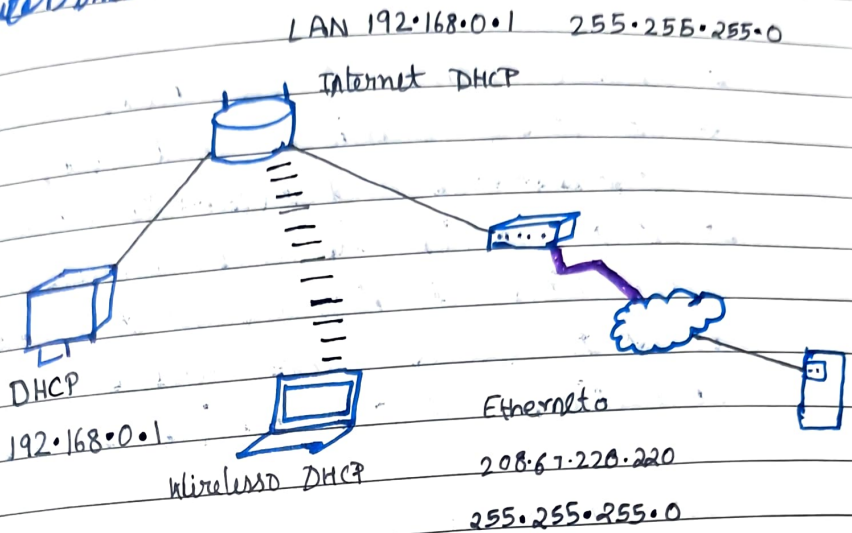 LAN 192.168.0.1 255.255.255.0
Internet DHCP
DHCP
192.168.0.1.
Wireless0 DHCP
Ethernet0
208.67.220.220
255.255.255.0